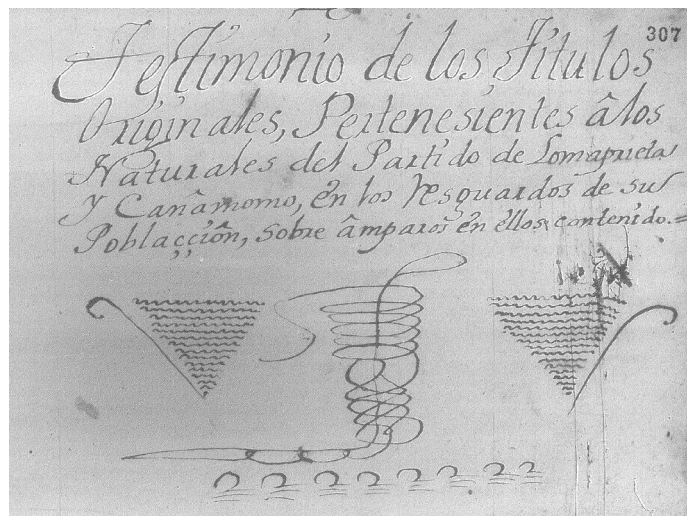 307
Testimonio de los Titulos
Originales, Pertenesientes â los
Naturales del Partido de Lomaprieta
Y Cañamomo, en los Resguardos de su
Poblacçión, Sobre âmparos en êllos contenido.=